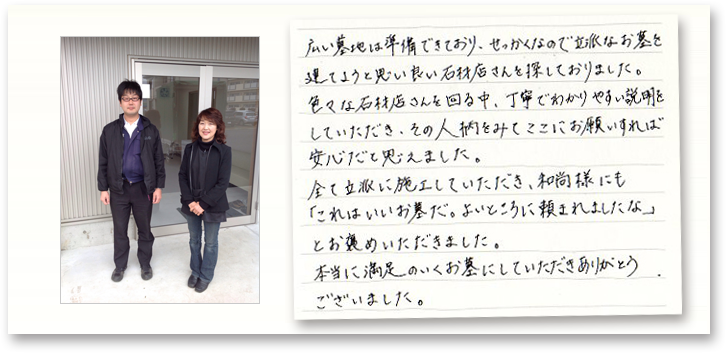 広い墓地は準備できており、せっかくなので立派なお墓を
建てようと思い良い石材店さんを探しておりました。
色々な石材店さんを回る中、丁寧でわかりやすい説明を
していただき、その人柄をみてここにお願いすれば
安心だと思えました。
全て立派に施工していただき、和尚様にも
「これはいいお墓だ。よいところに頼まれましたな」
とお褒めいただきました。
本当に満足のいくお墓にしていただきありがとう
ございました。